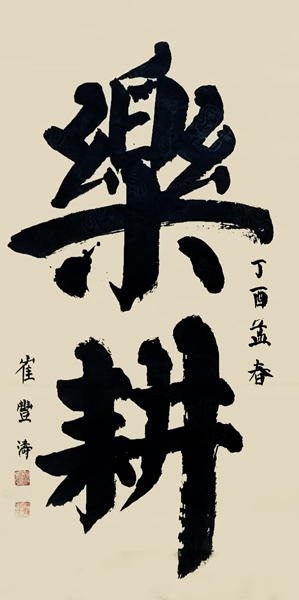 樂耕
丁酉孟春
崔豐濤